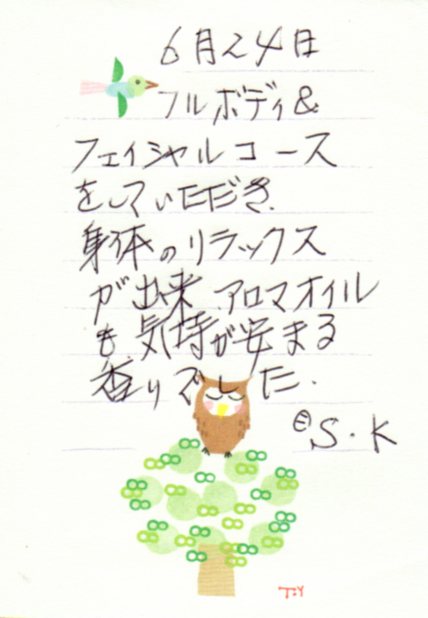 6月24日
フルボディ&
フェイシャルコース
をしていただき、
身体のリラックス
が出来、アロマオイル
も、気持が安まる
香りでした.
S.K